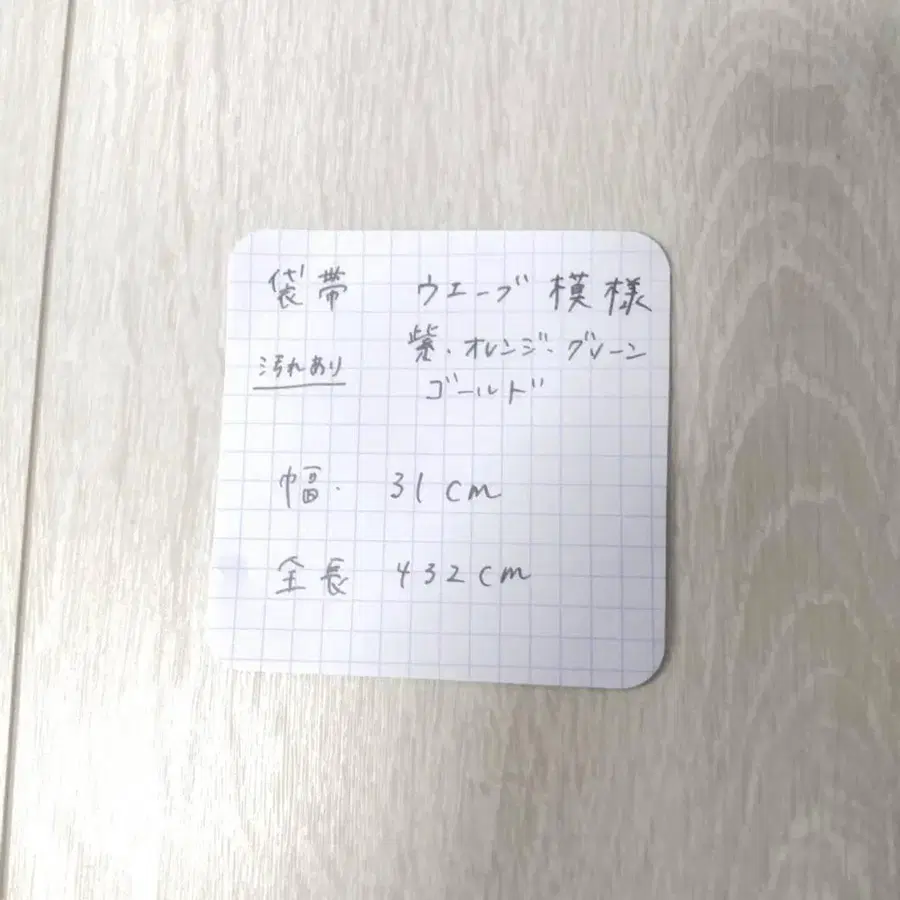 袋帯 ウエーブ模様
汚れあり 紫・オレンジ・グリーン
ゴールド
幅. 31cm
全長 432cm